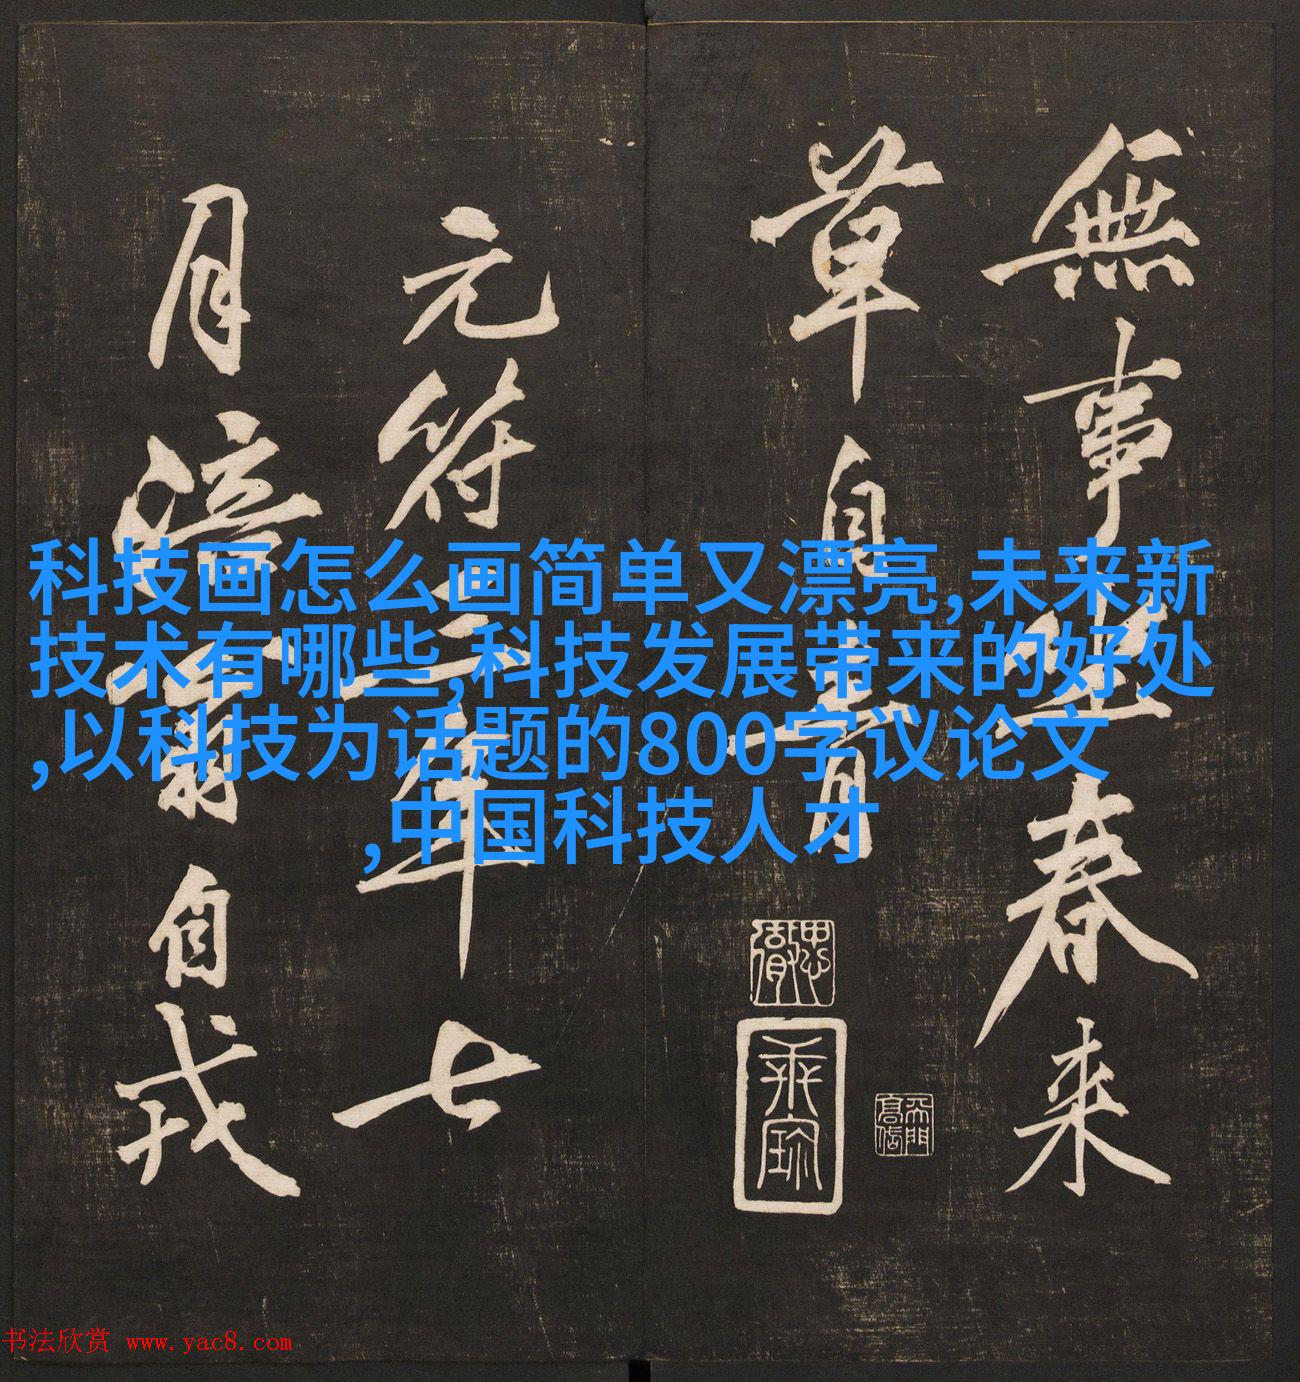 無事坐春来
草自青
元符三年七
月涪翁自戎
科技画怎么画简单又漂亮,未来新
技术有哪些,科技发展带来的好处
,以科技为话题的800字议论文
,中国科技人才
书法欣赏 www.yac8.com